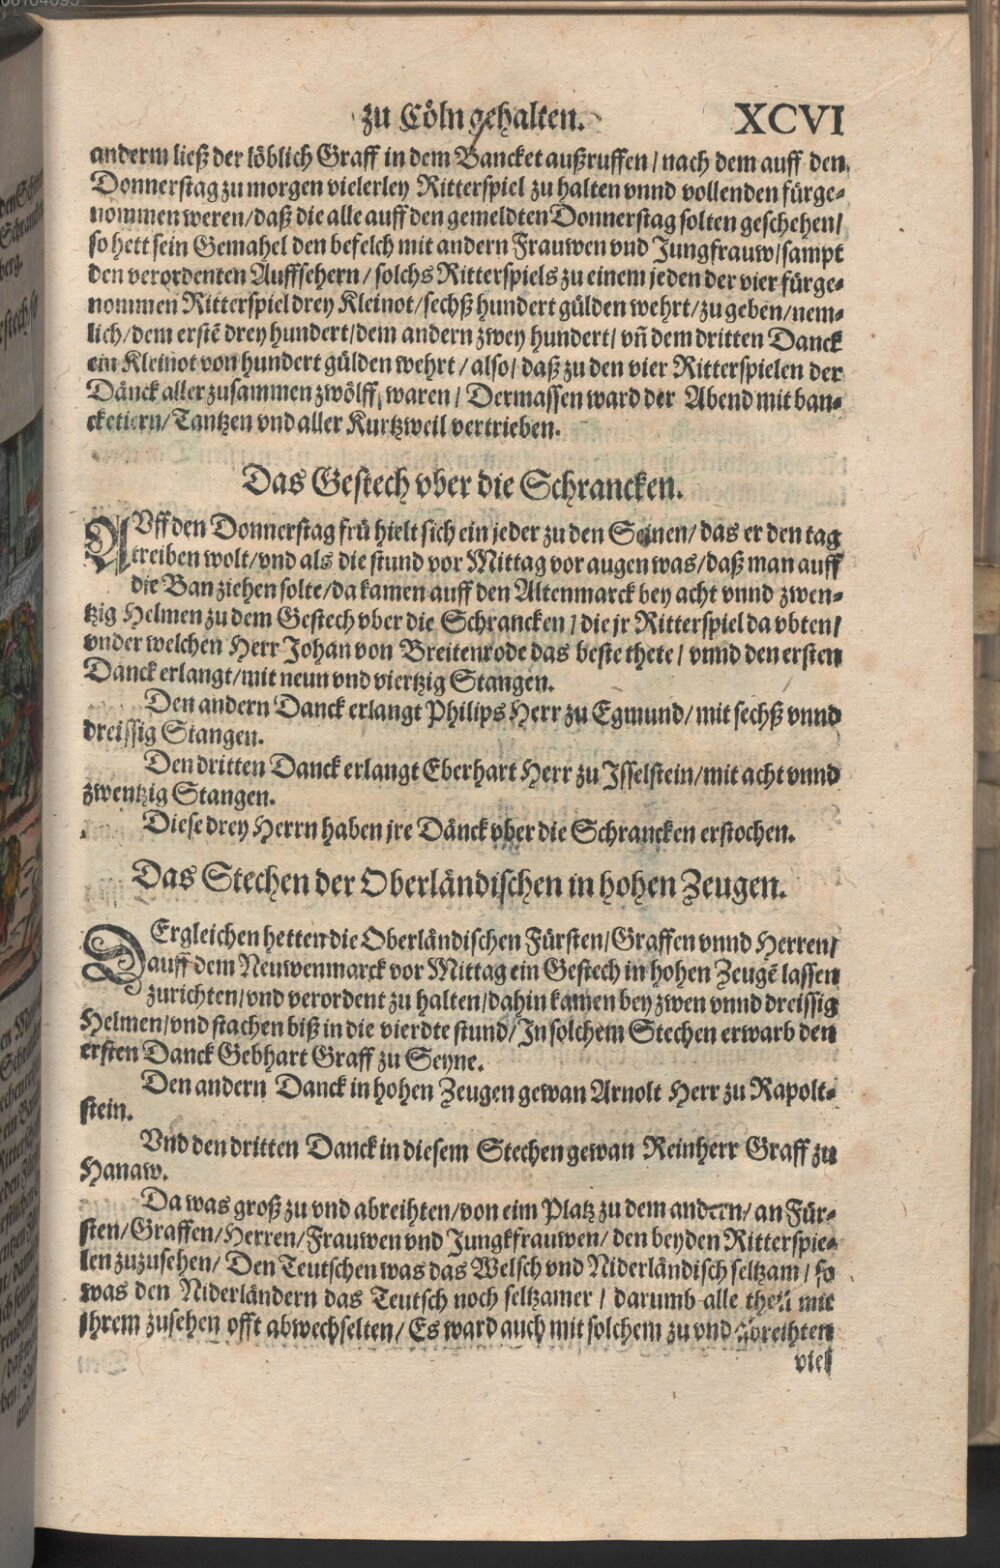 zu Cöln gehalten. XCVI
anderm ließ der löblich Graff in dem Bancket außruffen / nach dem auff den
Donnerstag zu morgen vielerley Ritterspiel zu halten vnnd vollenden fürge-
nommen weren / daß die alle auff den gemeldten Donnerstag solten geschehen /
so hett sein Gemahel den befelch mit andern Frauwen vnd Jungfrauw / sampt
den verordenten Auffsehern / solchs Ritterspiels zu einem jeden der vier fürge-
nommen Ritterspiel drey Kleinot / sechß hundert gülden wehrt / zu geben / nem-
lich / dem erstē drey hundert / dem andern zwey hundert / vn̄ dem dritten Danck
ein Kleinot von hundert gülden wehrt / also / daß zu den vier Ritterspielen der
Dänck aller zusammen zwölff waren / Dermassen ward der Abend mit ban-
cketiern / Tantzen vnd aller Kurtzweil vertrieben.
Das Gestech vber die Schrancken.
AVff den Donnerstag frü hielt sich ein jeder zu den Seinen / das er den tag
treiben wolt / vnd als die stund vor Mittag vor augen was / daß man auff
die Ban ziehen solte / da kamen auff den Altenmarck bey acht vnnd zwen-
tzig Helmen zu dem Gestech vber die Schrancken / die jr Ritterspiel da vbten /
vnder welchen Herr Johan von Breitenrode das beste thete / vnnd den ersten
Danck erlangt / mit neun vnd viertzig Stangen.
Den andern Danck erlangt Philips Herr zu Egmund / mit sechß vnnd
dreissig Stangen.
Den dritten Danck erlangt Eberhart Herr zu Jsselstein / mit acht vnnd
zwentzig Stangen.
Diese drey Herrn haben jre Dänck vber die Schrancken erstochen.
Das Stechen der Oberländischen in hohen Zeugen.
DErgleichen hetten die Oberländischen Fürsten / Graffen vnnd Herren /
auff dem Neuwenmarck vor Mittag ein Gestech in hohen Zeugē lassen
zurichten / vnd verordent zu halten / dahin kamen bey zwen vnnd dreissig
Helmen / vnd stachen biß in die vierdte stund / Jn solchem Stechen erwarb den
ersten Danck Gebhart Graff zu Seyne.
Den andern Danck in hohen Zeugen gewan Arnolt Herr zu Rapolt-
stein.
Vnd den dritten Danck in diesem Stechen gewan Reinherr Graff zu
Hanaw.
Da was groß zu vnd abreihten / von eim Platz zu dem andern / an Für-
sten / Graffen / Herren / Frauwen vnd Jungkfrauwen / den beyden Ritterspie-
len zuzusehen / Den Teutschen was das Welsch vnd Niderländisch seltzam / so
was den Niderländern das Teutsch noch seltzamer / darumb alle theil mit
jhrem zusehen offt abwechselten / Es ward auch mit solchem zu vnd abreihten
viel